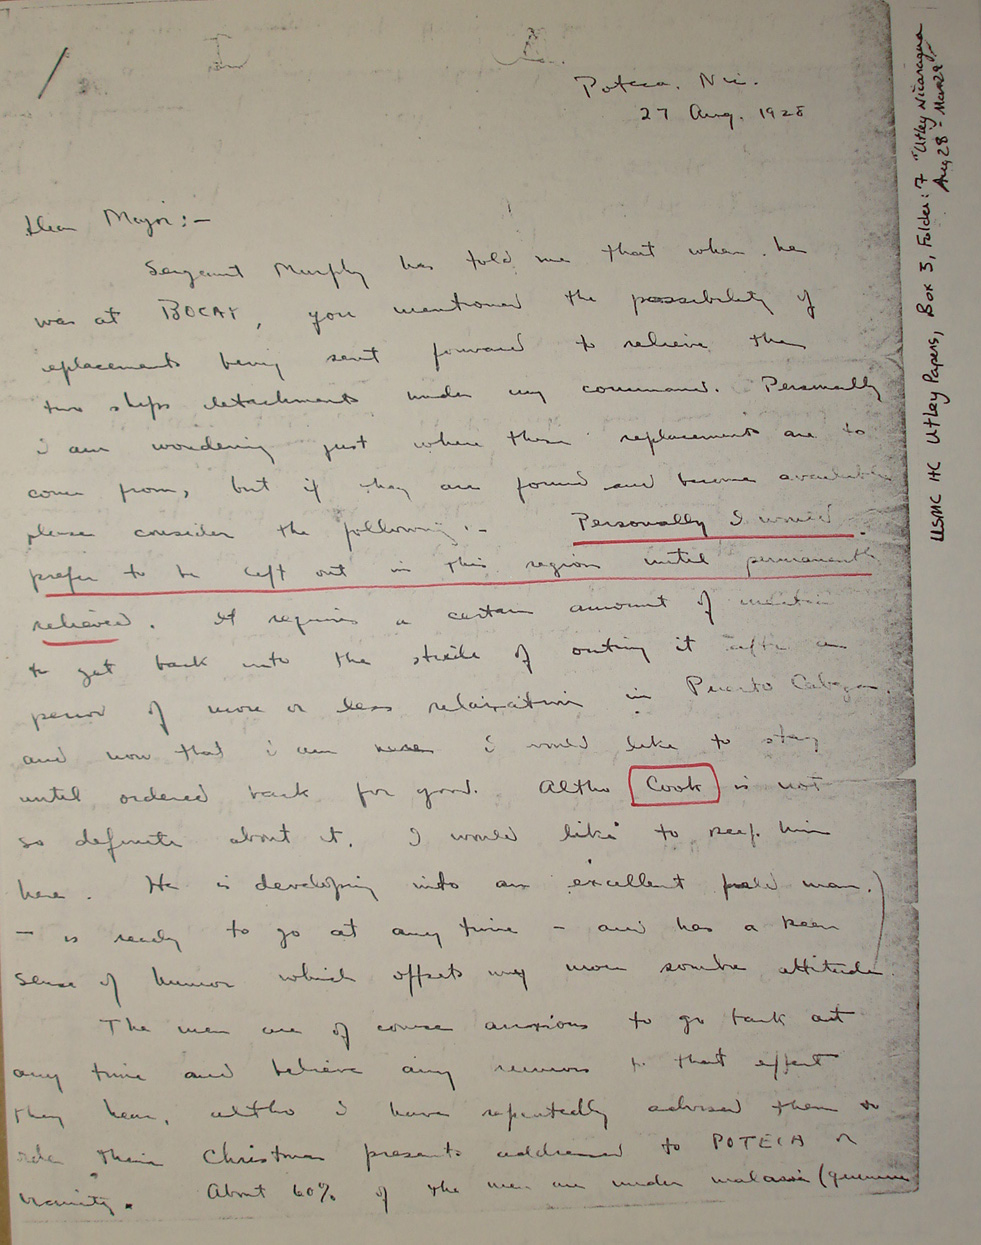 Poteca, Nic.
27 Aug. 1928
Dear Major:-
Sergeant Murphy has told me that when he
was at BOCAY, you mentioned the possibility of
eplacements being sent forward to relieve the
two ships detachments under my command. Personally
i am wondering just where these replacements are to
come from, but if they are found and become available
please consider the following:- Personally I would
prefer to be left out in this region until permanent
relieved. It requires a certain amount of
to get back into the stride of outing it after a
period of more or less relaxation in Puerto Cabezas.
and now that i am i would like to stay
until ordered back for good. Altho Cook is not
so definite about it, I would like to keep him
here. He is developing into an excellent field man.
- is ready to go at any time - and has a keen
sense of humor which offsets my more sombre attitude.
The men are of course anxious to go back at
any time and believe any rumors to that effect
they hear, altho i have repeatedly advised them to
rder their Christmas presents addressed to POTECA or
vicinity. About 60% of the men are under malaria (quinine
USMC HC Utley Papers, Box 5, Folder: 7 "Utley Nicaragua
Aug 28 - Mar 29"